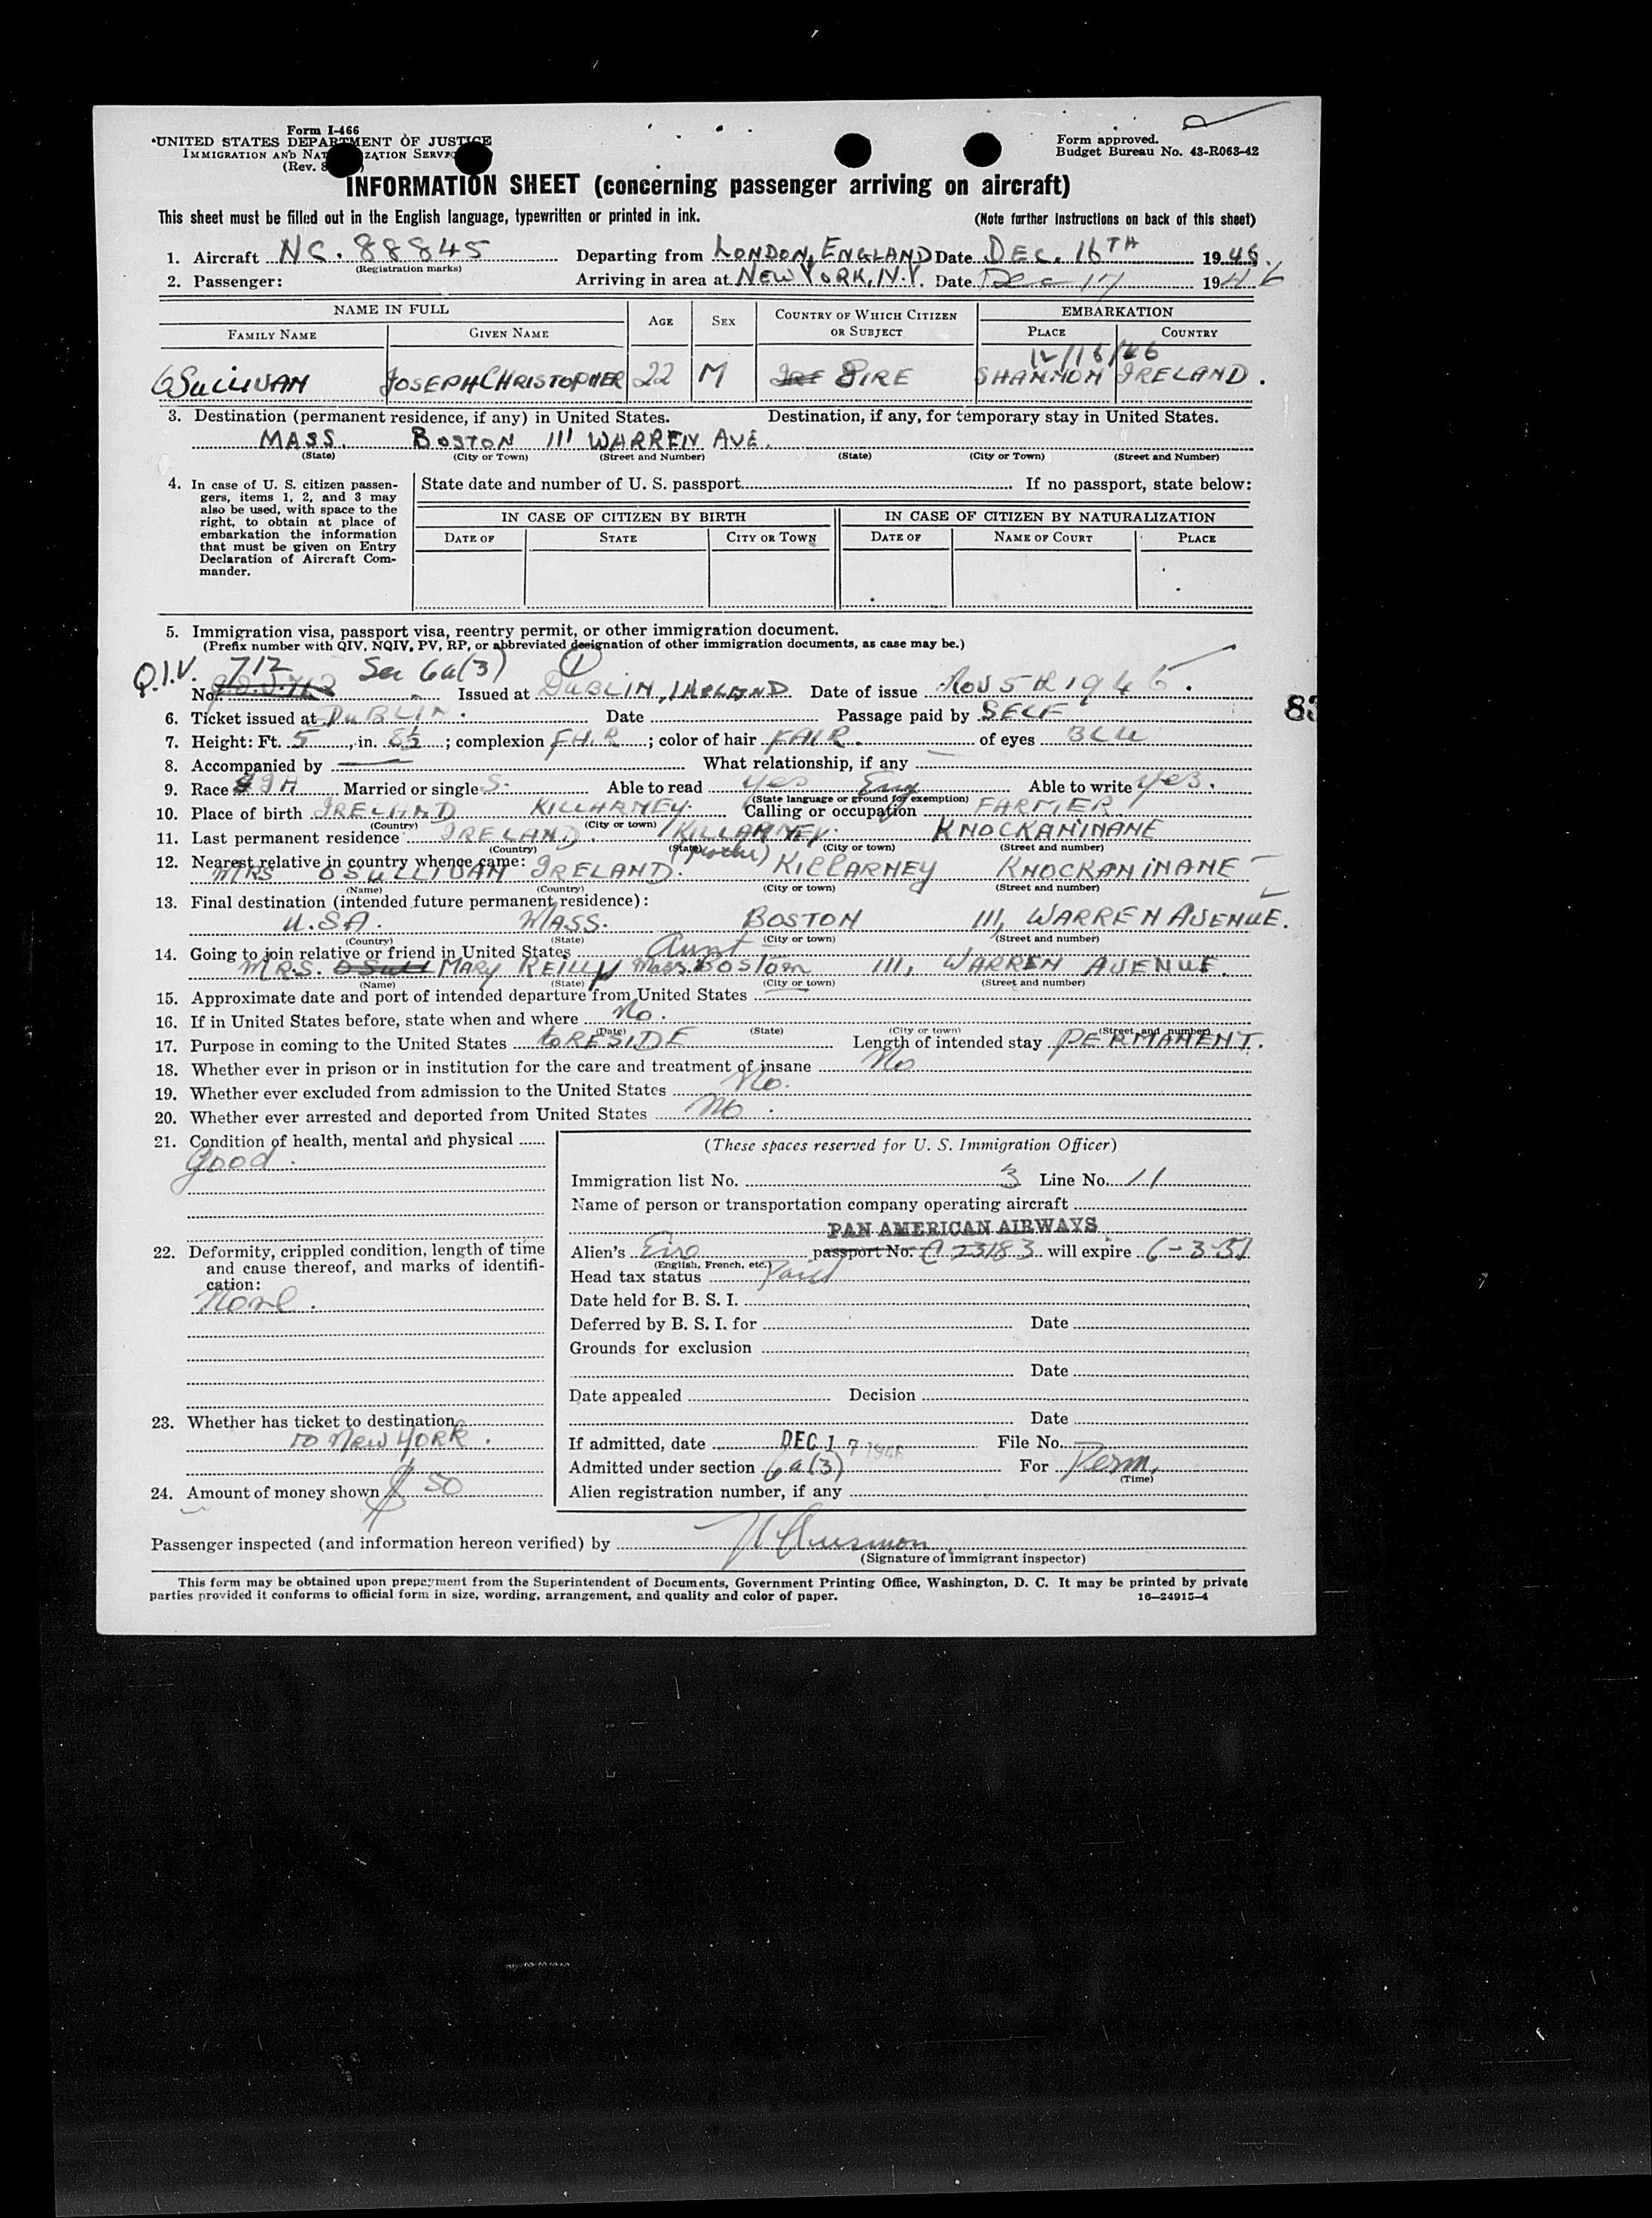 Form I-466
UNITED STATES DEPARTMENT OF JUSTICE
IMMIGRATION AND NATURALIZATION SERVICE
(Rev.
Form approved.
Budget Bureau No. 43-R063-42
INFORMATION SHEET (concerning passenger arriving on aircraft)
This sheet must be filled out in the English language, typewritten or printed in ink. (Note further instructions on back of this sheet)
1. Aircraft NC. 88845 Departing from LONDON, ENGLAND Date DEC. 16TH 1946.
(Registration marks)
2. Passenger: Arriving in area at NEW YORK, N.Y. Date Dec 17 1946
NAME IN FULL AGE SEX COUNTRY OF WHICH CITIZEN OR SUBJECT EMBARKATION
FAMILY NAME GIVEN NAME PLACE COUNTRY
12/16/46
OSULLIVAN JOSEPH CHRISTOPHER 22 M EIRE SHANNON IRELAND.
3. Destination (permanent residence, if any) in United States. Destination, if any, for temporary stay in United States.
MASS. BOSTON 111 WARREN AVE.
(State) (City or Town) (Street and Number) (State) (City or Town) (Street and Number)
4. In case of U. S. citizen passengers, items 1, 2, and 3 may also be used, with space to the right, to obtain at place of embarkation the information that must be given on Entry Declaration of Aircraft Commander.
State date and number of U. S. passport If no passport, state below:
IN CASE OF CITIZEN BY BIRTH IN CASE OF CITIZEN BY NATURALIZATION
DATE OF STATE CITY OR TOWN DATE OF NAME OF COURT PLACE
5. Immigration visa, passport visa, reentry permit, or other immigration document.
(Prefix number with QIV, NQIV, PV, RP, or abbreviated designation of other immigration documents, as case may be.)
Q.I.V. 712 Sec 6a(3) 1
No. Issued at DUBLIN, IRELAND Date of issue NOV 5th 1946.
83
6. Ticket issued at DUBLIN. Date Passage paid by SELF
7. Height: Ft. 5, in. 8½; complexion FAIR; color of hair FAIR. of eyes BLU
8. Accompanied by — What relationship, if any —
9. Race Married or single S. Able to read yes Eng Able to write yes.
(State language or ground for exemption)
10. Place of birth IRELAND KILLARNEY. Calling or occupation FARMER
(Country) (City or town)
11. Last permanent residence IRELAND. KILLARNEY. KNOCKANINANE
(Country) (State) (City or town) (Street and number)
12. Nearest relative in country whence came: (mother)
MRS OSULLIVAN IRELAND. KILLARNEY KNOCKANINANE
(Name) (Country) (City or town) (Street and number)
13. Final destination (intended future permanent residence):
U.S.A. MASS. BOSTON 111, WARREN AVENUE.
(Country) (State) (City or town) (Street and number)
14. Going to join relative or friend in United States Aunt
MRS. OSULL MARY REILLY Mass. BOSTON 111, WARREN AVENUE.
(Name) (State) (City or town) (Street and number)
15. Approximate date and port of intended departure from United States
16. If in United States before, state when and where No.
(Date) (State) (City or town) (Street and number)
17. Purpose in coming to the United States to RESIDE Length of intended stay PERMANENT.
18. Whether ever in prison or in institution for the care and treatment of insane No
19. Whether ever excluded from admission to the United States No.
20. Whether ever arrested and deported from United States No.
21. Condition of health, mental and physical
Good.
(These spaces reserved for U. S. Immigration Officer)
Immigration list No. 3 Line No. 11
Name of person or transportation company operating aircraft
PAN AMERICAN AIRWAYS
22. Deformity, crippled condition, length of time and cause thereof, and marks of identification:
None.
Alien's Eire passport No. 23183 will expire 6-3-51
(English, French, etc.)
Head tax status Paid
Date held for B. S. I.
Deferred by B. S. I. for Date
Grounds for exclusion
Date
Date appealed Decision
Date
23. Whether has ticket to destination
TO NEW YORK.
If admitted, date DEC 17 1946 File No.
Admitted under section 6a(3) For Perm.
(Time)
24. Amount of money shown $ 50
Alien registration number, if any
Passenger inspected (and information hereon verified) by
(Signature of immigrant inspector)
This form may be obtained upon prepayment from the Superintendent of Documents, Government Printing Office, Washington, D. C. It may be printed by private
parties provided it conforms to official form in size, wording, arrangement, and quality and color of paper. 16—24915-4